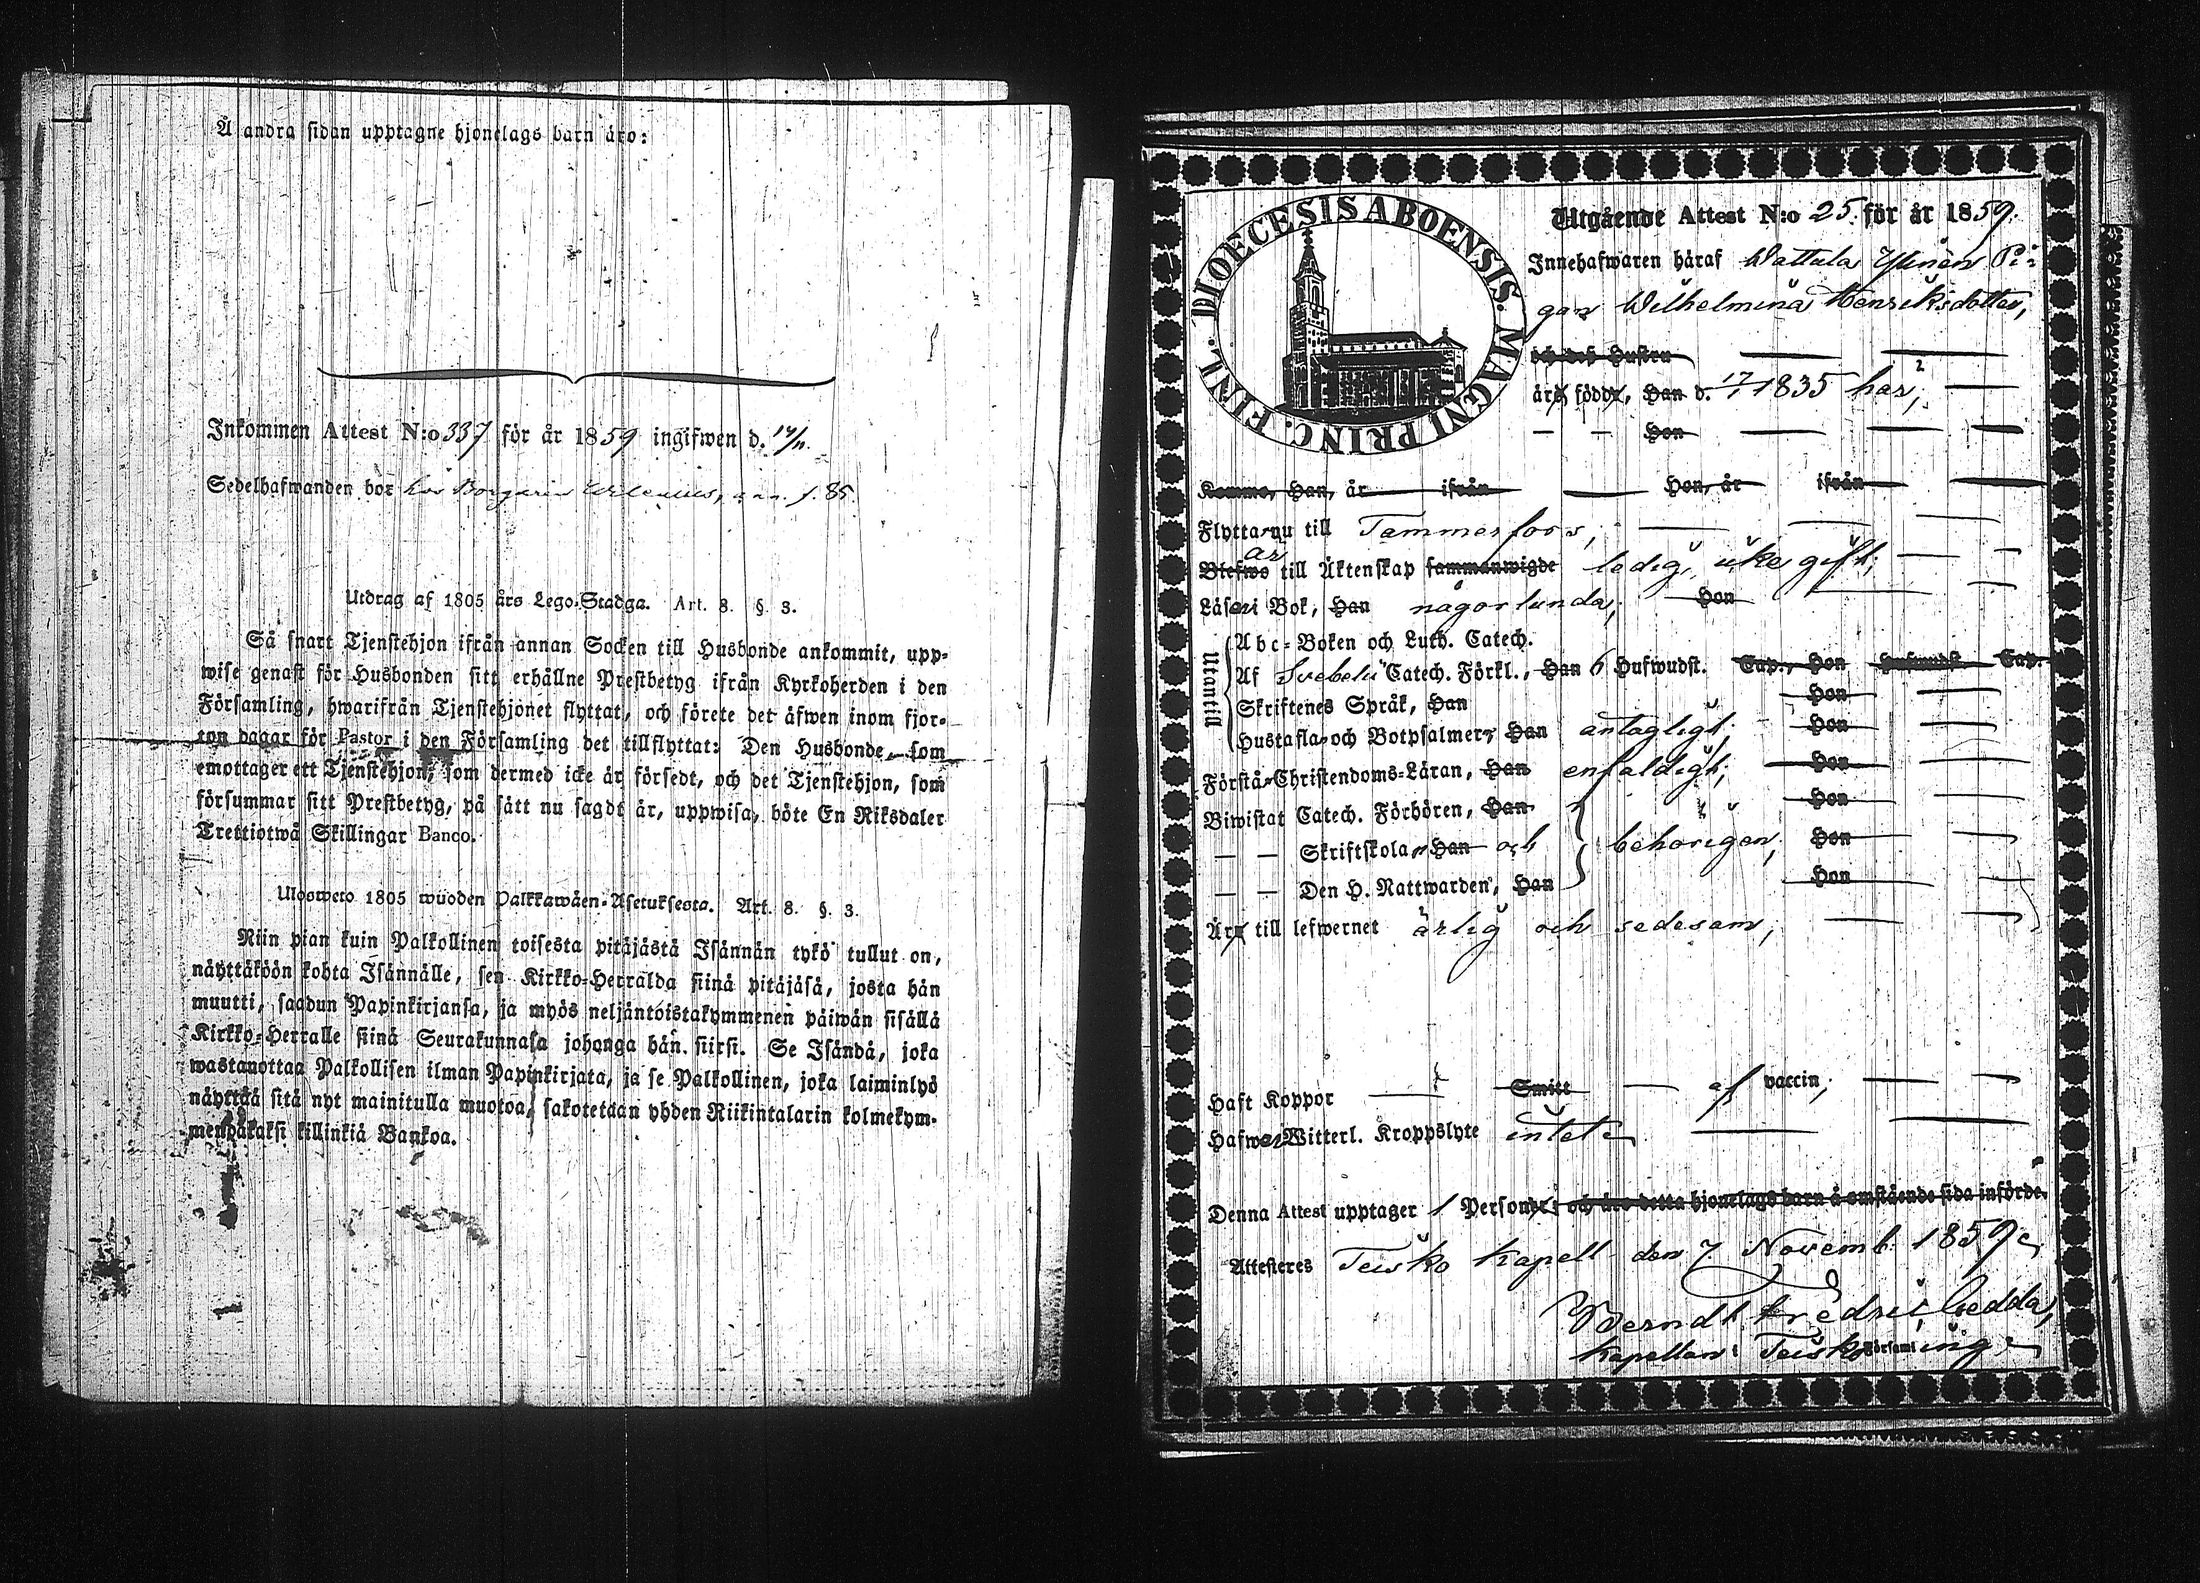 Å andra sidan upptagne hjonelags barn äro:
Inkommen Attest N:o 337 för år 1859 ingifwen d. 14/11.
Sedelhafwanden bor hos Borgaren
Utdrag af 1805 års Lego-Stadga. Art. 8. §. 3.
Så snart Tjenstehjon ifrån annan Socken till Husbonde ankommit, upp-
wise genast för Husbonden sitt erhållne Prestbetyg ifrån Kyrkoherden i den
Församling, hwarifrån Tjenstehjonet flyttat, och förete det äfwen inom fjor-
ton dagar för Pastor i den Församling det tillflyttat: Den Husbonde, som
emottager ett Tjenstehjon, som dermed icke är försedt, och det Tjenstehjon, som
försummar sitt Prestbetyg, på sätt nu sagdt är, uppwisa, böte En Riksdaler
Trettiotwå Skillingar Banco.
Ulosweto 1805 wuoden Palkkawäen-Asetuksesta. Art. 8. §. 3.
Niin pian kuin Palkollinen toisesta pitäjästä Isännän tykö tullut on,
näyttäköön kohta Isännälle, sen Kirkko-Herralda siinä pitäjäsä, josta hän
muutti, saadun Papinkirjansa, ja myös neljäntoistakymmenen päiwän sisällä
Kirkko-Herralle siinä Seurakunnasa johonga hän siirsi. Se Isändä, joka
wastanottaa Palkollisen ilman Papinkirjata, ja se Palkollinen, joka laiminlyö
näyttää sitä nyt mainitulla muotoa, sakotetaan yhden Riikintalarin kolmekym-
mendäkaksi killinkiä Bankoa.
DIOECESIS ABOENSIS. MAGNI PRINC. FINL.
Utgående Attest N:o 25. för år 1859.
Innehafwaren häraf Wattula Ylinen Pi-
gan Wilhelmina Henriksdotter,
och des Hustru
äro födde, Han d. 17/7 1835 här;
Hon
Komne, Han, år ifrån Hon, år ifrån
Flytta nu till Tammerfors;
är
Blefwo till Äktenskap sammanwigde ledig, icke gift;
Läser i Bok, Han någorlunda; Hon
Utantill
Abc-Boken och Luth. Catech.
Af Svebelii Catech. Förkl., Han 6 Hufwudst. Cap., Hon Hufwudst. Cap.
Skriftenes Språk, Han Hon
Hustaflan och Botpsalmer, Han antagligt; Hon
Förstår Christendoms-Läran, Han enfaldigt; Hon
Biwistat Catech. Förhören, Han Hon
— — Skriftskolan Han och behörigen; Hon
— — Den H. Nattwarden, Han Hon
Äro till lefwernet ärlig och sedesam;
Haft Koppor Smitt af vaccin;
Hafwer Witterl. Kroppslyte intet
Denna Attest upptager 1 Person och äro detta hjonelags barn å omstående sida införde.
Attesteres Teisko Kapell den 7 Novemb. 1859
Berndt Fredric Gedda,
Kapellan i Teisko Församling